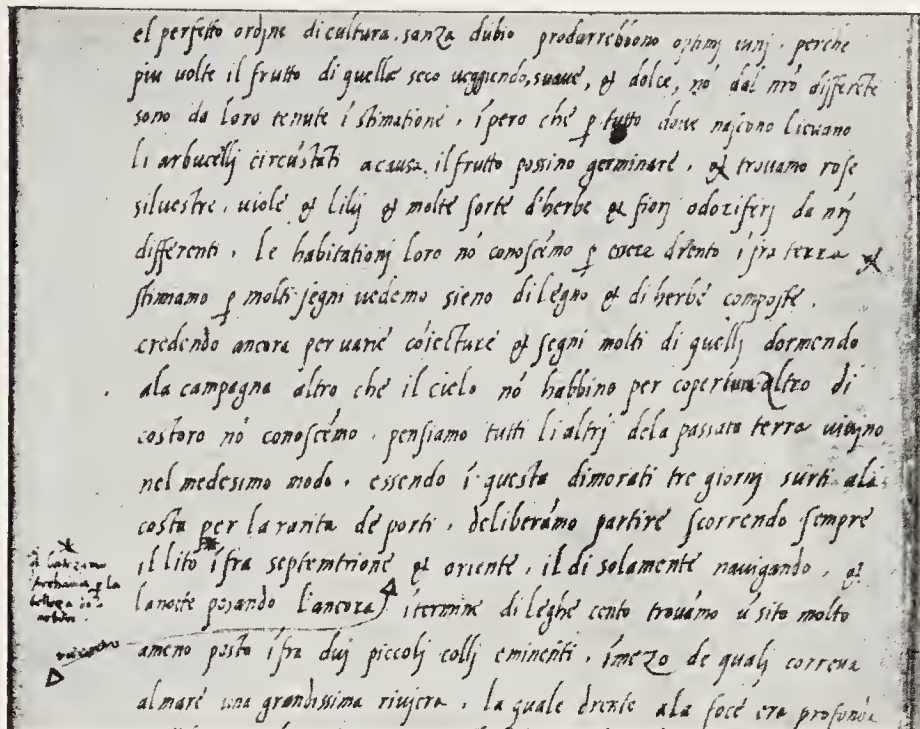 el perfetto ordine di cultura. sanza dubio produrrebbono optimj vinj. perche
piu volte il frutto di quelle seco veggiendo, suave, & dolce, nō dal nrō differēte
sono da loro tenute ī stimatione. īpero che p̱ tutto dove nascono lievano
li arbucellj circūstāti a causa. il frutto possino germinare. & trovamo rose
silvestre. viole & lilij & molte sorte d'herbe & fiorj odoriferj da nrj
differenti. le habitationj loro nō conoscēmo p̱ essere drento īfra terra &
stimiamo p̱ molti segni vedemo sieno di legno & di herbe composte.
credendo ancora per varie cōiecture & segni molti di quellj dormendo
ala campagna altro che il cielo nō habbino per copertura altro di
costoro nō conoscēmo. pensiamo tutti li altrj dela passata terra vivino
nel medesimo modo. essendo ī questa dimorati tre giornj surti ala
costa per la rarita de porti. deliberāmo partire scorrendo sempre
il lito īfra septemtrione & oriente. il di solamente navigando. &
la nocte posando l'ancora ītermine di leghe cento trovāmo ū sito molto
ameno posto īfra duj piccolj collj eminēti. īmezo de qualj correva
al mare una grandissima riviera. la quale drente ala foce era profonda